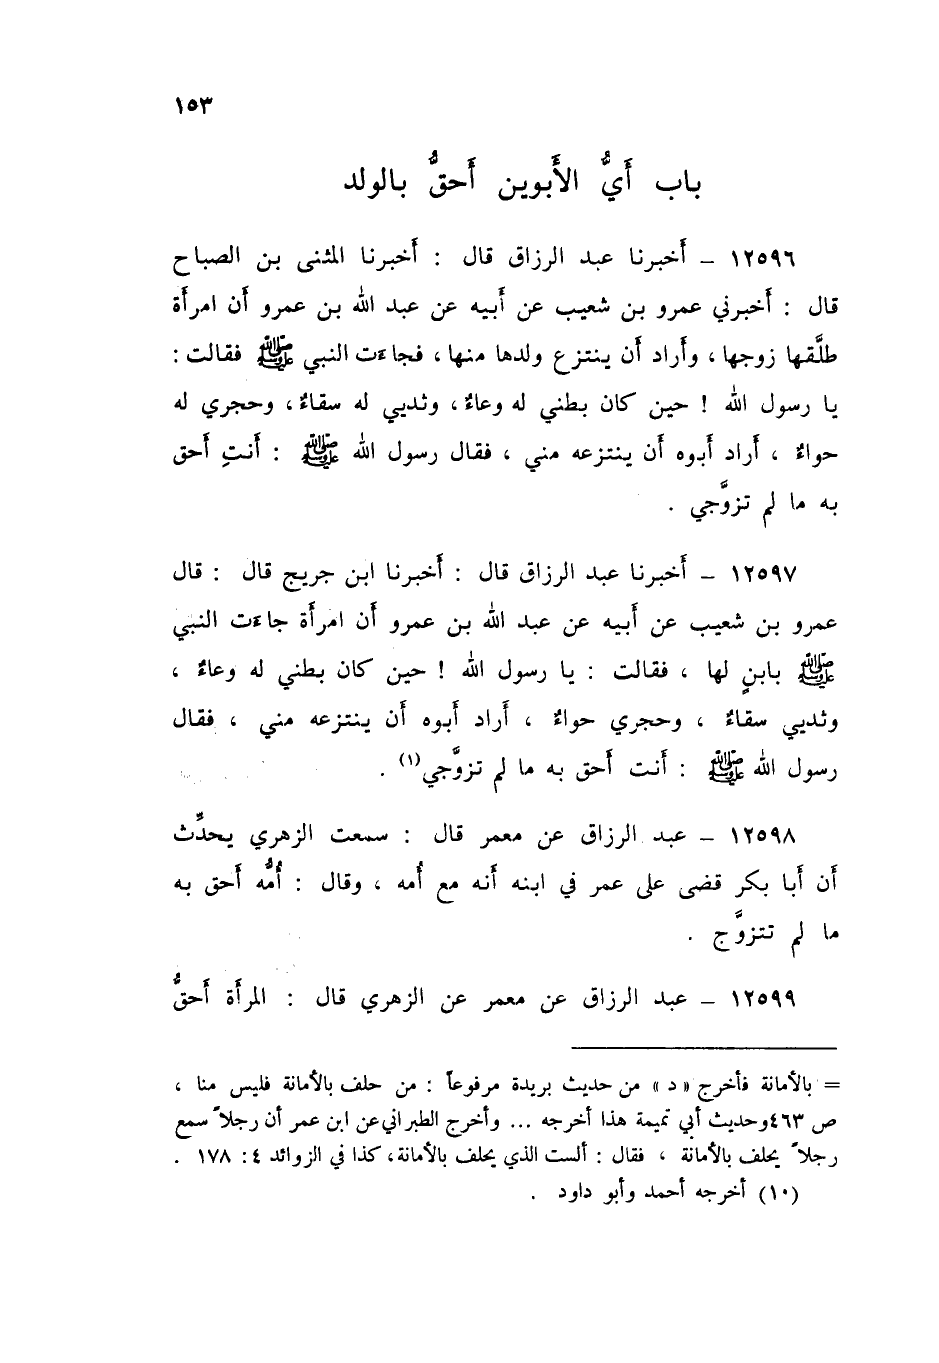 ١٥٣
باب أَيُّ الأَبوين أَحقُّ بالولد
١٢٥٩٦ – أَخبرنا عبد الرزاق قال : أَخبرنا المثنى بن الصباح
قال : أَخبرني عمرو بن شعيب عن أَبيه عن عبد الله بن عمرو أَن امرأَة
طلَّقها زوجها ، وأَراد أَن ينتزع ولدها منها ، فجاءَت النبي ﷺ فقالت :
يا رسول الله ! حين كان بطني له وعاءٌ ، وثديي له سقاءٌ ، وحجري له
حواءٌ ، أَراد أَبوه أَن ينتزعه مني ، فقال رسول الله ﷺ : أَنتِ أَحق
به ما لم تزوَّجي .
١٢٥٩٧ – أَخبرنا عبد الرزاق قال : أَخبرنا ابن جريج قال : قال
عمرو بن شعيب عن أَبيه عن عبد الله بن عمرو أَن امرأَة جاءَت النبي
ﷺ بابنٍ لها ، فقالت : يا رسول الله ! حين كان بطني له وعاءٌ ،
وثديي سقاءٌ ، وحجري حواءٌ ، أَراد أَبوه أَن ينتزعه مني ، فقال
رسول الله ﷺ : أَنت أَحق به ما لم تزوَّجي (١) .
١٢٥٩٨ – عبد الرزاق عن معمر قال : سمعت الزهري يحدِّث
أَن أَبا بكر قضى على عمر في ابنه أَنه مع أُمه ، وقال : أُمُّه أَحق به
ما لم تتزوَّج .
١٢٥٩٩ – عبد الرزاق عن معمر عن الزهري قال : المرأَة أَحقُّ
= بالأمانة فأخرج « د » من حديث بريدة مرفوعاً : من حلف بالأمانة فليس منا ،
ص ٤٦٣ وحديث أبي تميمة هذا أخرجه ... وأخرج الطبراني عن ابن عمر أن رجلاً سمع
رجلاً يحلف بالأمانة ، فقال : ألست الذي يحلف بالأمانة ، كذا في الزوائد ٤ : ١٧٨ .
(١٠) أخرجه أحمد وأبو داود .